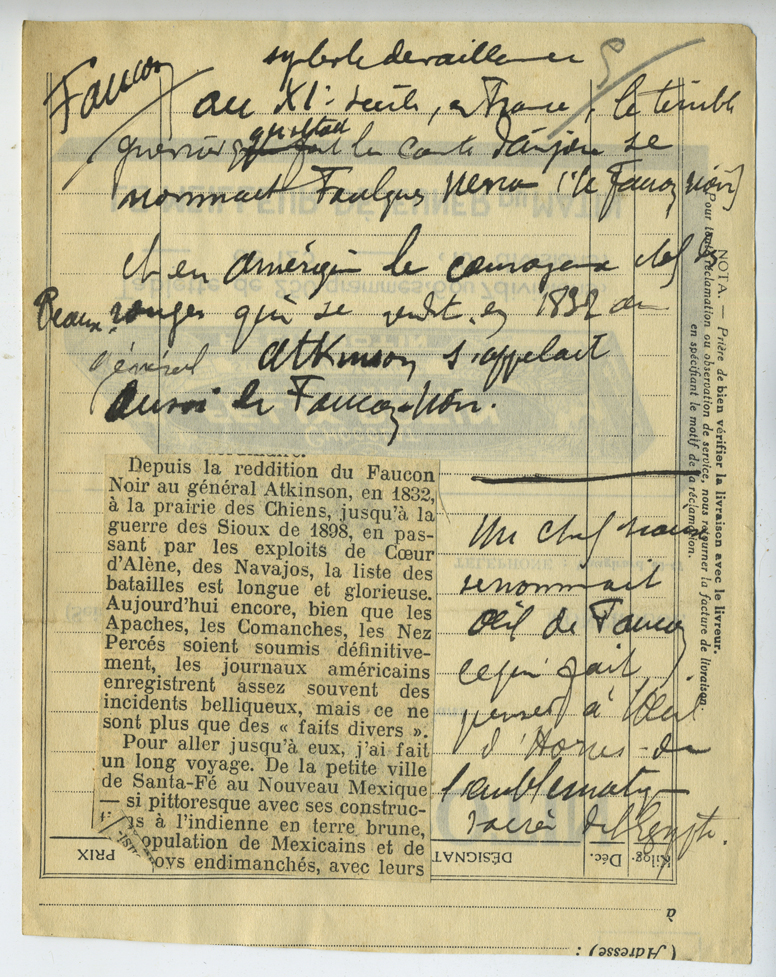 Faucon
symbole de vaillance
au XIe siècle, en France, le terrible
guerrier qu'était le comte d'Anjou se
nommait Foulques Nerra (le Faucon noir)
et en Amérique le courageux chef des
Peaux-rouges qui se rendit en 1832 au
général Atkinson s'appelait
aussi le Faucon-Noir.
Depuis la reddition du Faucon
Noir au général Atkinson, en 1832,
à la prairie des Chiens, jusqu'à la
guerre des Sioux de 1898, en pas-
sant par les exploits de Cœur
d'Alène, des Navajos, la liste des
batailles est longue et glorieuse.
Aujourd'hui encore, bien que les
Apaches, les Comanches, les Nez
Percés soient soumis définitive-
ment, les journaux américains
enregistrent assez souvent des
incidents belliqueux, mais ce ne
sont plus que des « faits divers ».
Pour aller jusqu'à eux, j'ai fait
un long voyage. De la petite ville
de Santa-Fé au Nouveau Mexique
— si pittoresque avec ses construc-
à l'indienne en terre brune,
opulation de Mexicains et de
oys endimanchés, avec leurs
Un chef
se nommait
Œil de Faucon
ce qui fait
penser à l'Œil
d'Horus
l'emblématique
sacré de l'Egypte.
NOTA. — Prière de bien vérifier la livraison avec le livreur.
Pour toute réclamation ou observation de service, nous retourner la facture de livraison
en spécifiant le motif de la réclamation.
PRIX
DÉSIGNAT
Déc.
Kilog.
à
(Adresse) :